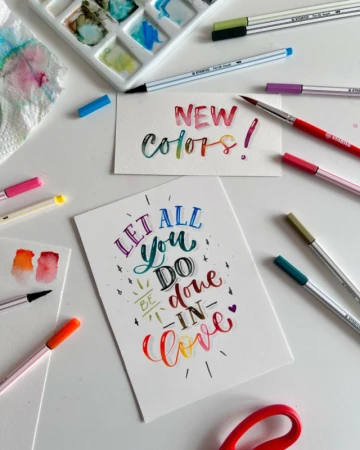 NEW
colors!
LET ALL
you
DO
BE
done
IN
love